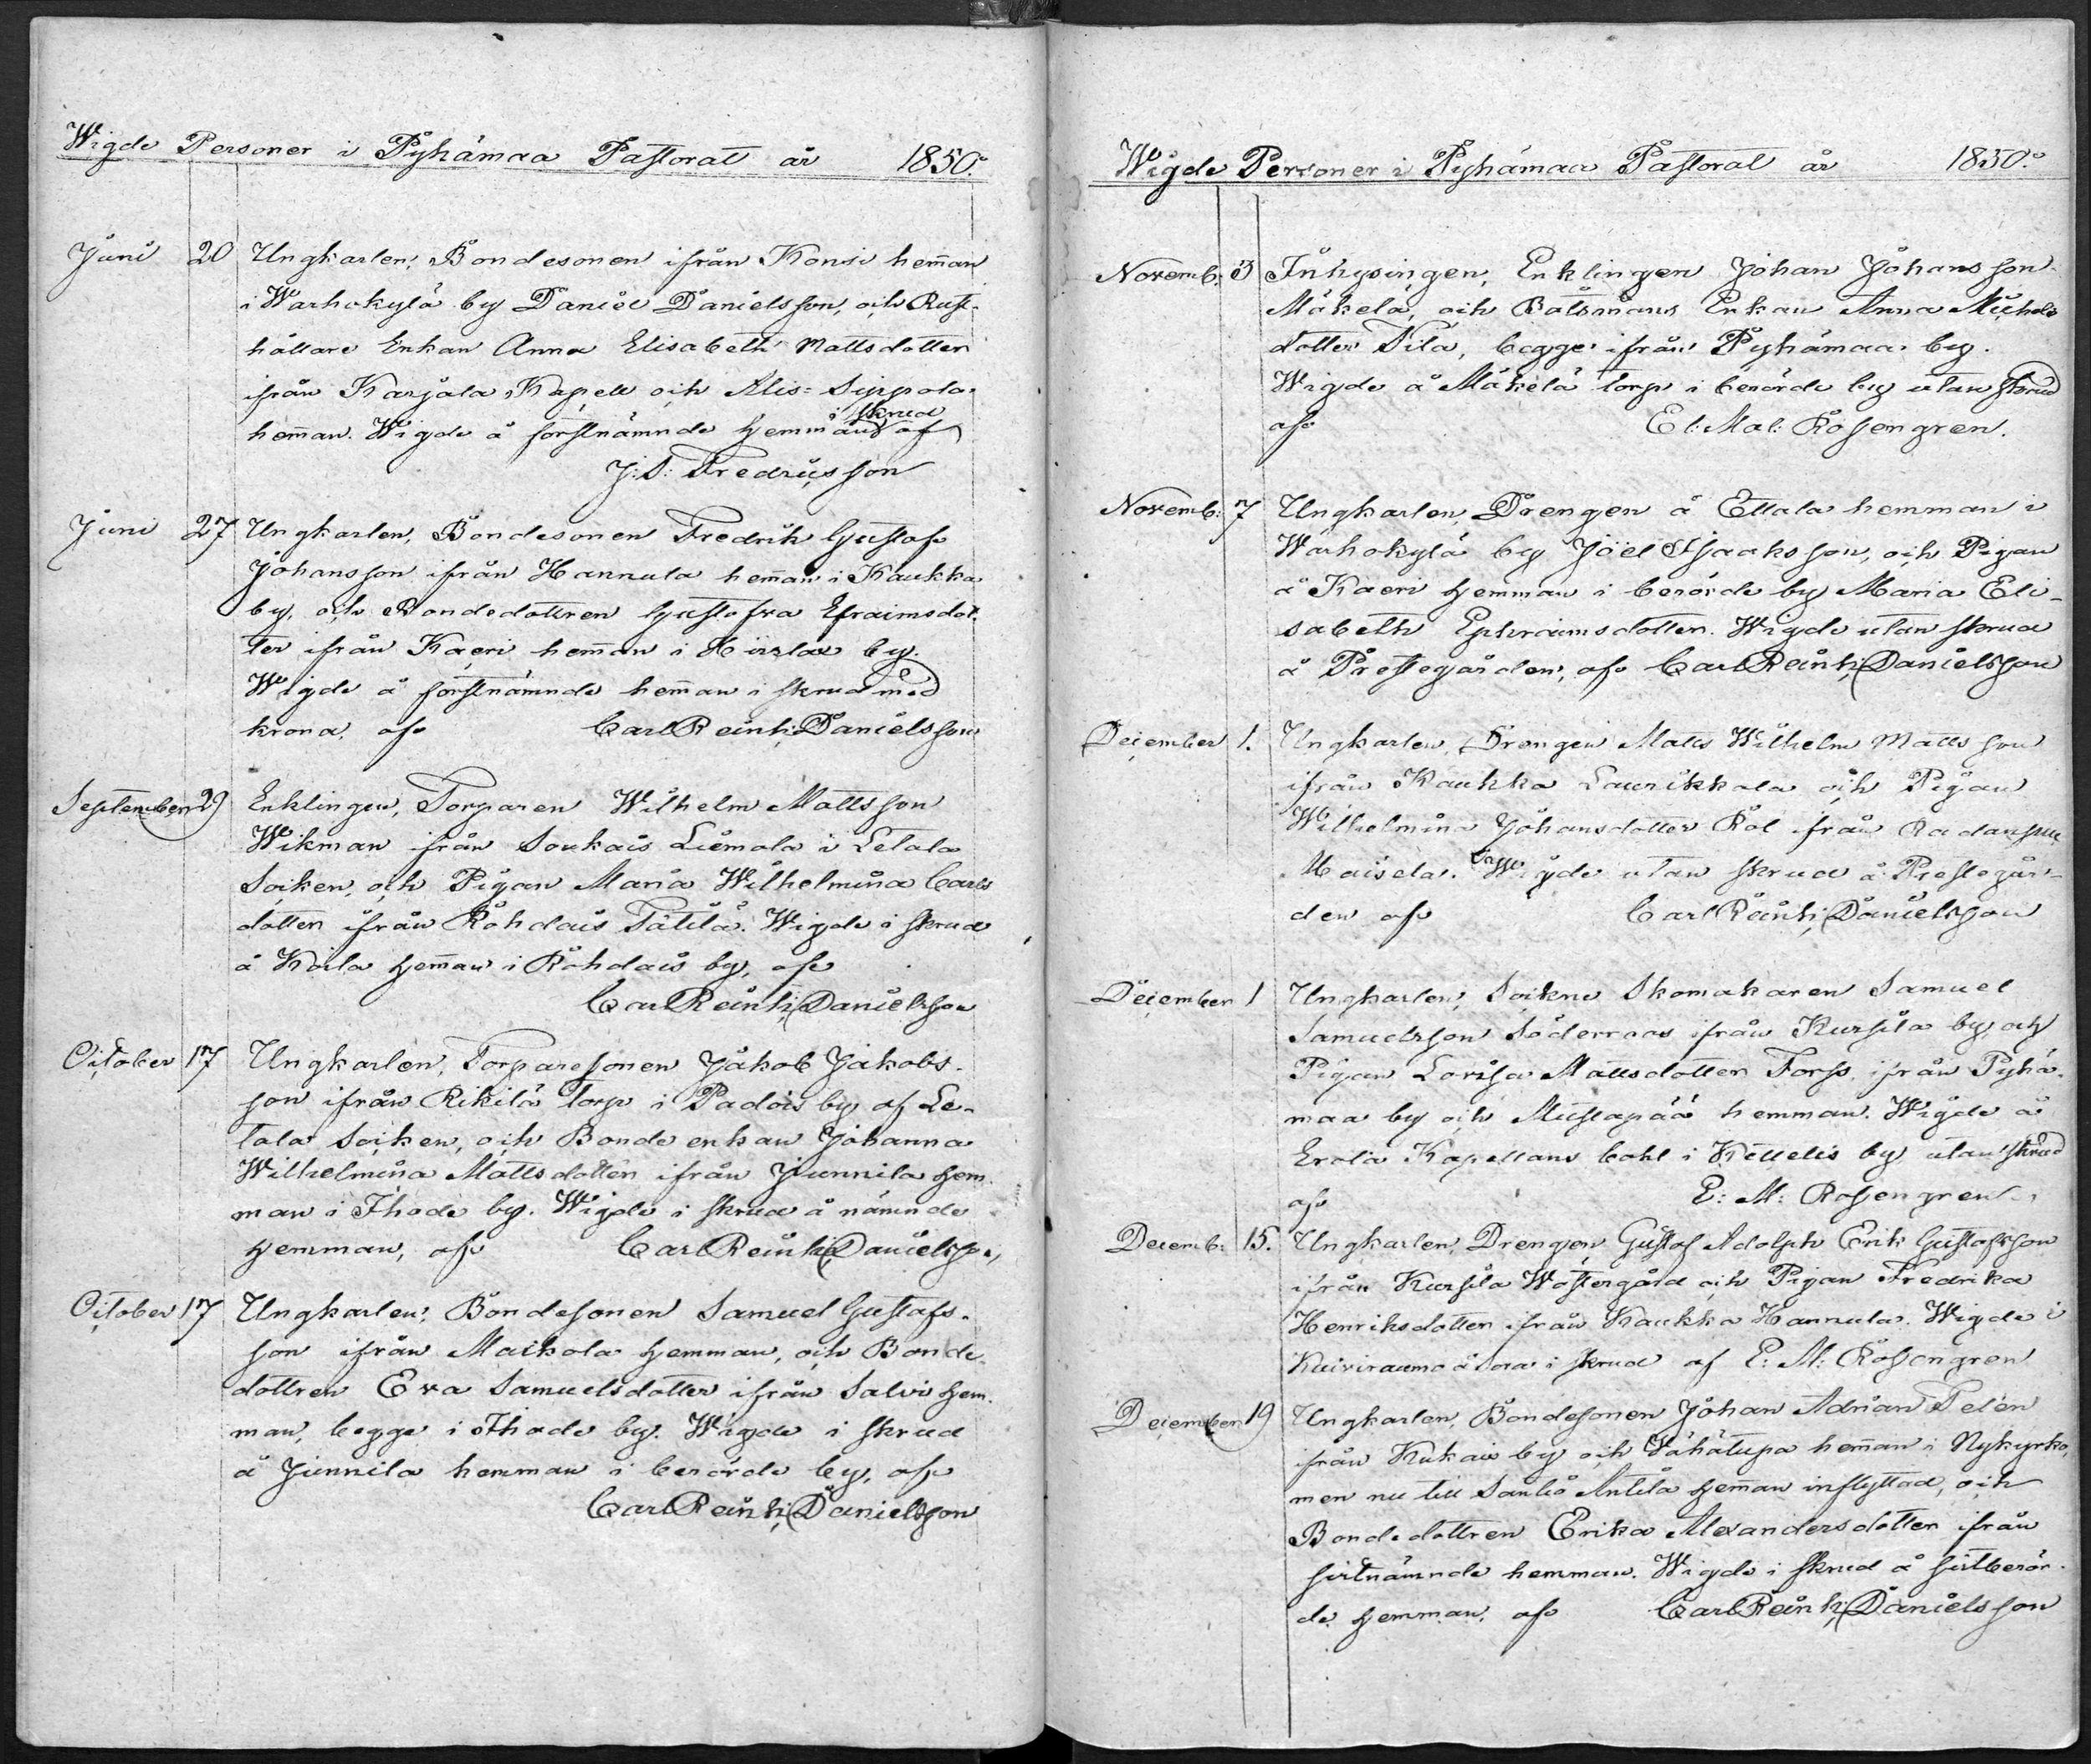 Wigde Personer i Pyhämaa Pastorat år 1850.
Juni 20 Ungkarlen, Bondesonen ifrån Konsi hem̄an
i Warhokylä by Daniel Danielsson, och Rust-
hållare Enkan Anna Elisabeth Mattsdotter
ifrån Karjala Kapell och Alis-Sippola
hem̄an. Wigde å förstnämnde hemman i skrud af
J: S: Fredricsson
Juni 27 Ungkarlen, Bondesonen Fredrik Gustaf
Johansson ifrån Hannula hem̄an i Kaukka
by, och Bondedottren Gustafva Efraimsdot-
ter ifrån Kaeri hem̄an i by.
Wigde å förstnämnde hem̄an i skrud med
krona, af Carl Reinh: Danielsson
September 29 Enklingen, Torparen Wilhelm Mattsson
Wikman ifrån Soukais Liemola i Letala
Socken, och Pigan Maria Wilhelmina Carls
dotter ifrån Rohdais Tätilä. Wigde i skrud
å Koila hem̄an i Rohdais by, af
Carl Reinh: Danielsson
October 17 Ungkarlen, Torparesonen Jakob Jakobs-
son ifrån Rikilä torp i Padois by af Le-
tala Socken, och Bonde enkan Johanna
Wilhelmina Mattsdotter ifrån Junnila hem-
man i Ihode by. Wigde i skrud å nämnde
hemman, af Carl Reinh: Danielsson
October 17 Ungkarlen, Bondesonen Samuel Gustafs-
son ifrån Maikola hemman, och Bonde-
dottren Eva Samuelsdotter ifrån Salvi hem-
man, begge i Ihode by. Wigde i skrud
å Junnila hemman i berörde by, af
Carl Reinh: Danielsson
Wigde Personer i Pyhämaa Pastorat år 1850.
Novemb: 3 Inhysingen, Enklingen Johan Johansson
Mäkelä, och Båtsmans Enkan Anna Michels
dotter Tila, begge ifrån Pyhämaa by.
Wigde å Mäkelä torp i berörde by utan skrud
af El: Mal: Rosengren.
Novemb: 7 Ungkarlen, Drengen å Ettala hemman i
Warhokylä by Joel Isaksson, och Pigan
å Kaeri hemman i berörde by Maria Eli-
sabeth Ephraimsdotter. Wigde utan skrud
å Prestegården, af Carl Reinh: Danielsson
December 1. Ungkarlen, Drengen Matts Wilhelm Mattsson
ifrån Kaukka Laurikkala och Pigan
Wilhelmina Johansdotter Rol ifrån
Wigde utan skrud å Prestegår-
den af Carl Reinh: Danielsson
December 1 Ungkarlen, Sockne Skomakaren Samuel
Samuelsson Söderroos ifrån Kursila by, och
Pigan Lovisa Mattsdotter Forss, ifrån Pyhä-
maa by och Mustapää hemman. Wigde å
Erola Kapellans bohl i Kettelis by, utan skrud
af E: M: Rosengren.
Decemb: 15. Ungkarlen, Drengen Gustaf Adolph Erik Gustafsson
ifrån Kursila Westergård och Pigan Fredrika
Henriksdotter ifrån Kaukka Hannula. Wigde i
Kuiviraumo i skrud af E: M: Rosengren
December 19 Ungkarlen, Bondesonen Johan Adrian Telén
ifrån Kukais by och Vähätupa hem̄an i Nykyrko,
men nu till Santio Antila hem̄an inflyttad, och
Bondedottren Erika Alexandersdotter ifrån
sistnämnde hemman. Wigde i skrud å sistberör-
de hemman, af Carl Reinh: Danielsson